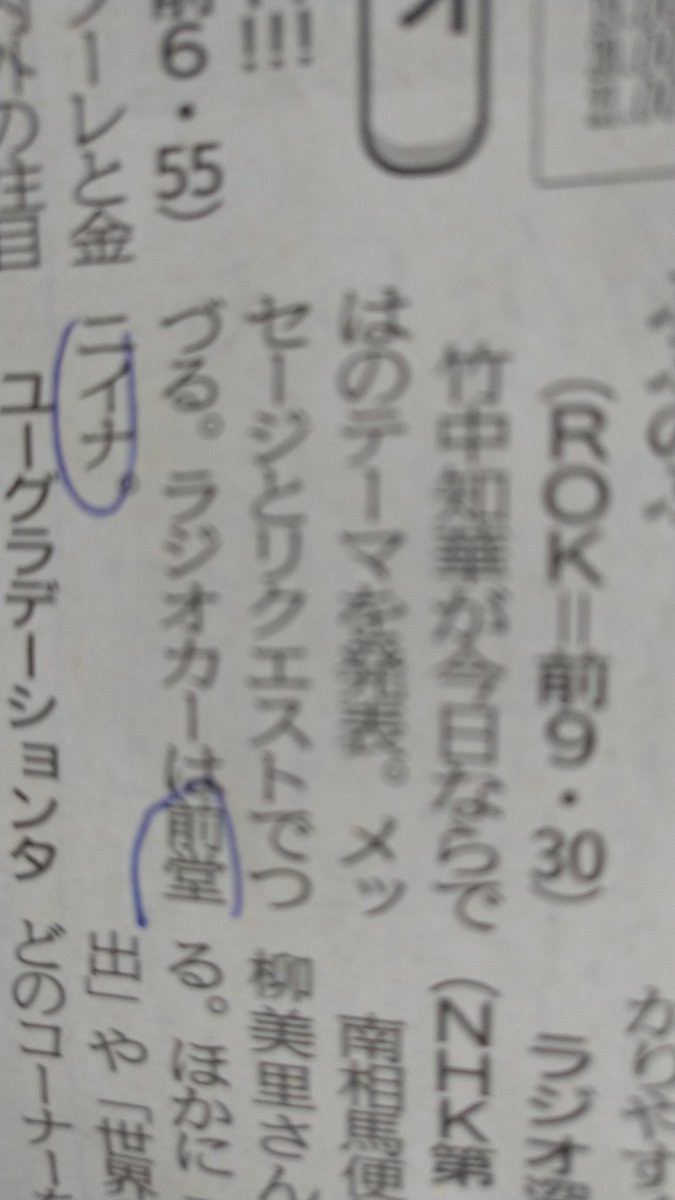 オ
!!!
前6・55)
ーレと金
外の注目
(ROK=前9・30)
竹中知華が今日ならで
はのテーマを発表。メッ
セージとリクエストでつ
づる。ラジオカーは前堂
ニイナ。
ユーグラデーションタ
かりやす
ラジオ深
(NHK第
南相馬便
柳美里さん
る。ほかに
出」や「世界
どのコーナー